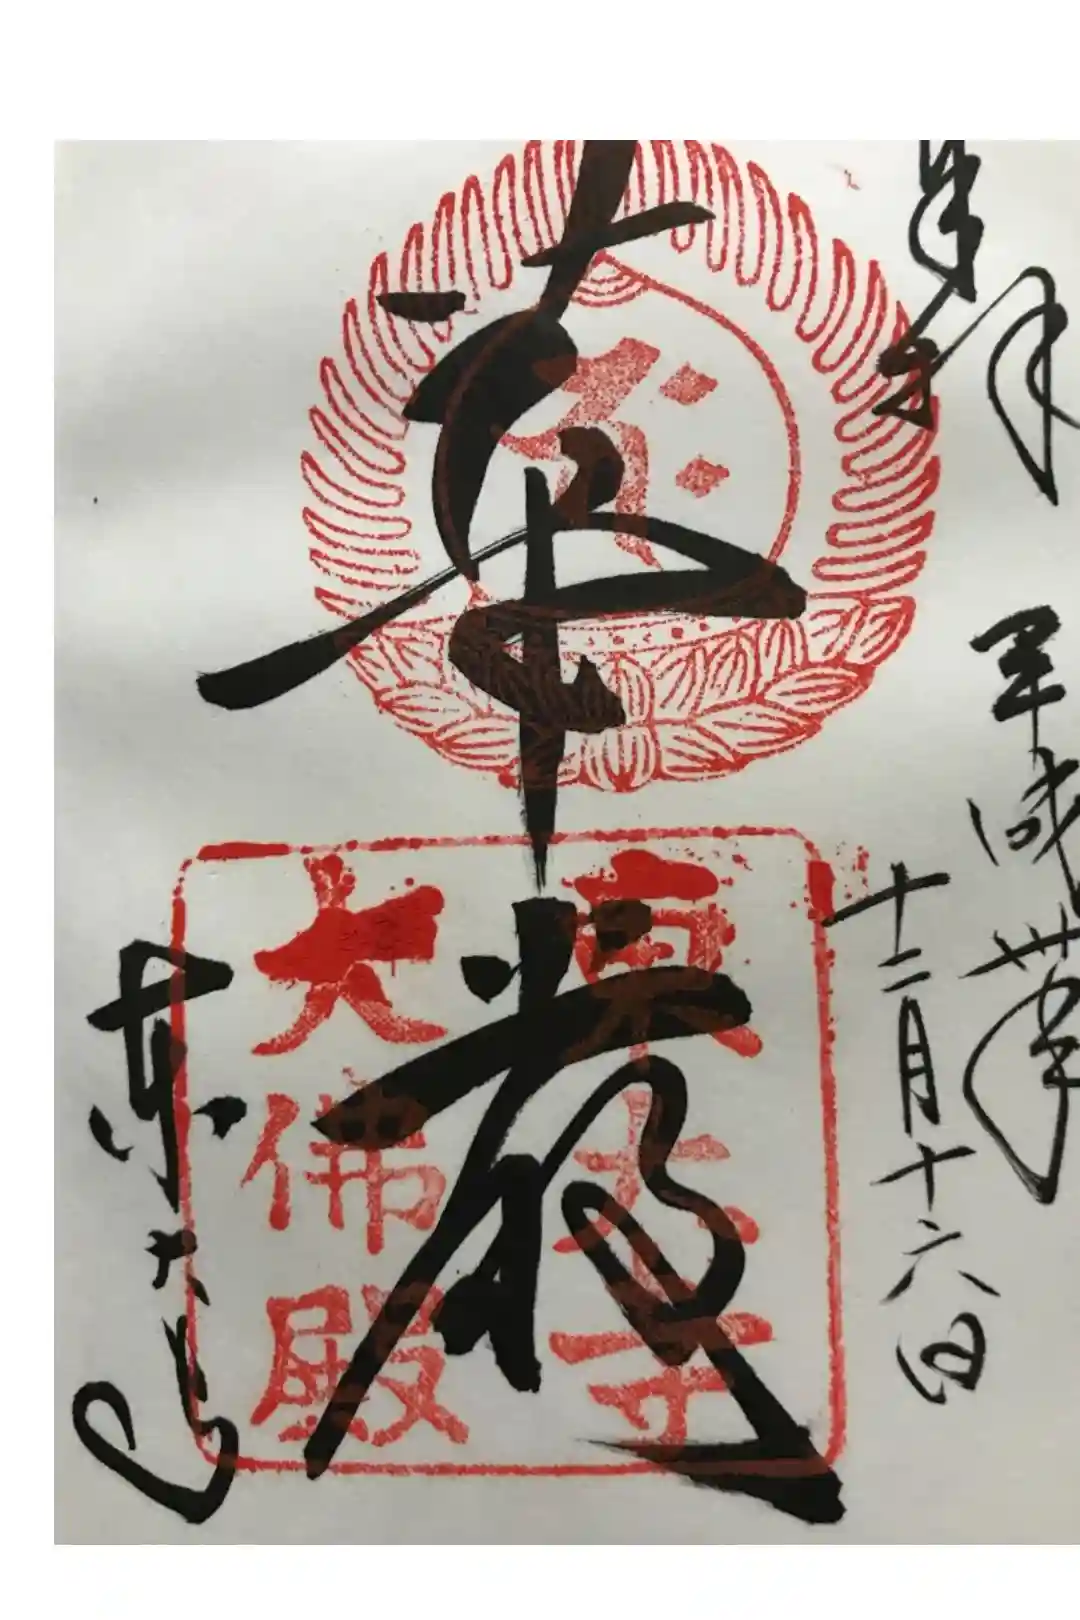 拝
平成卅年
十二月十六日
華厳
東大寺
東大寺
大佛殿